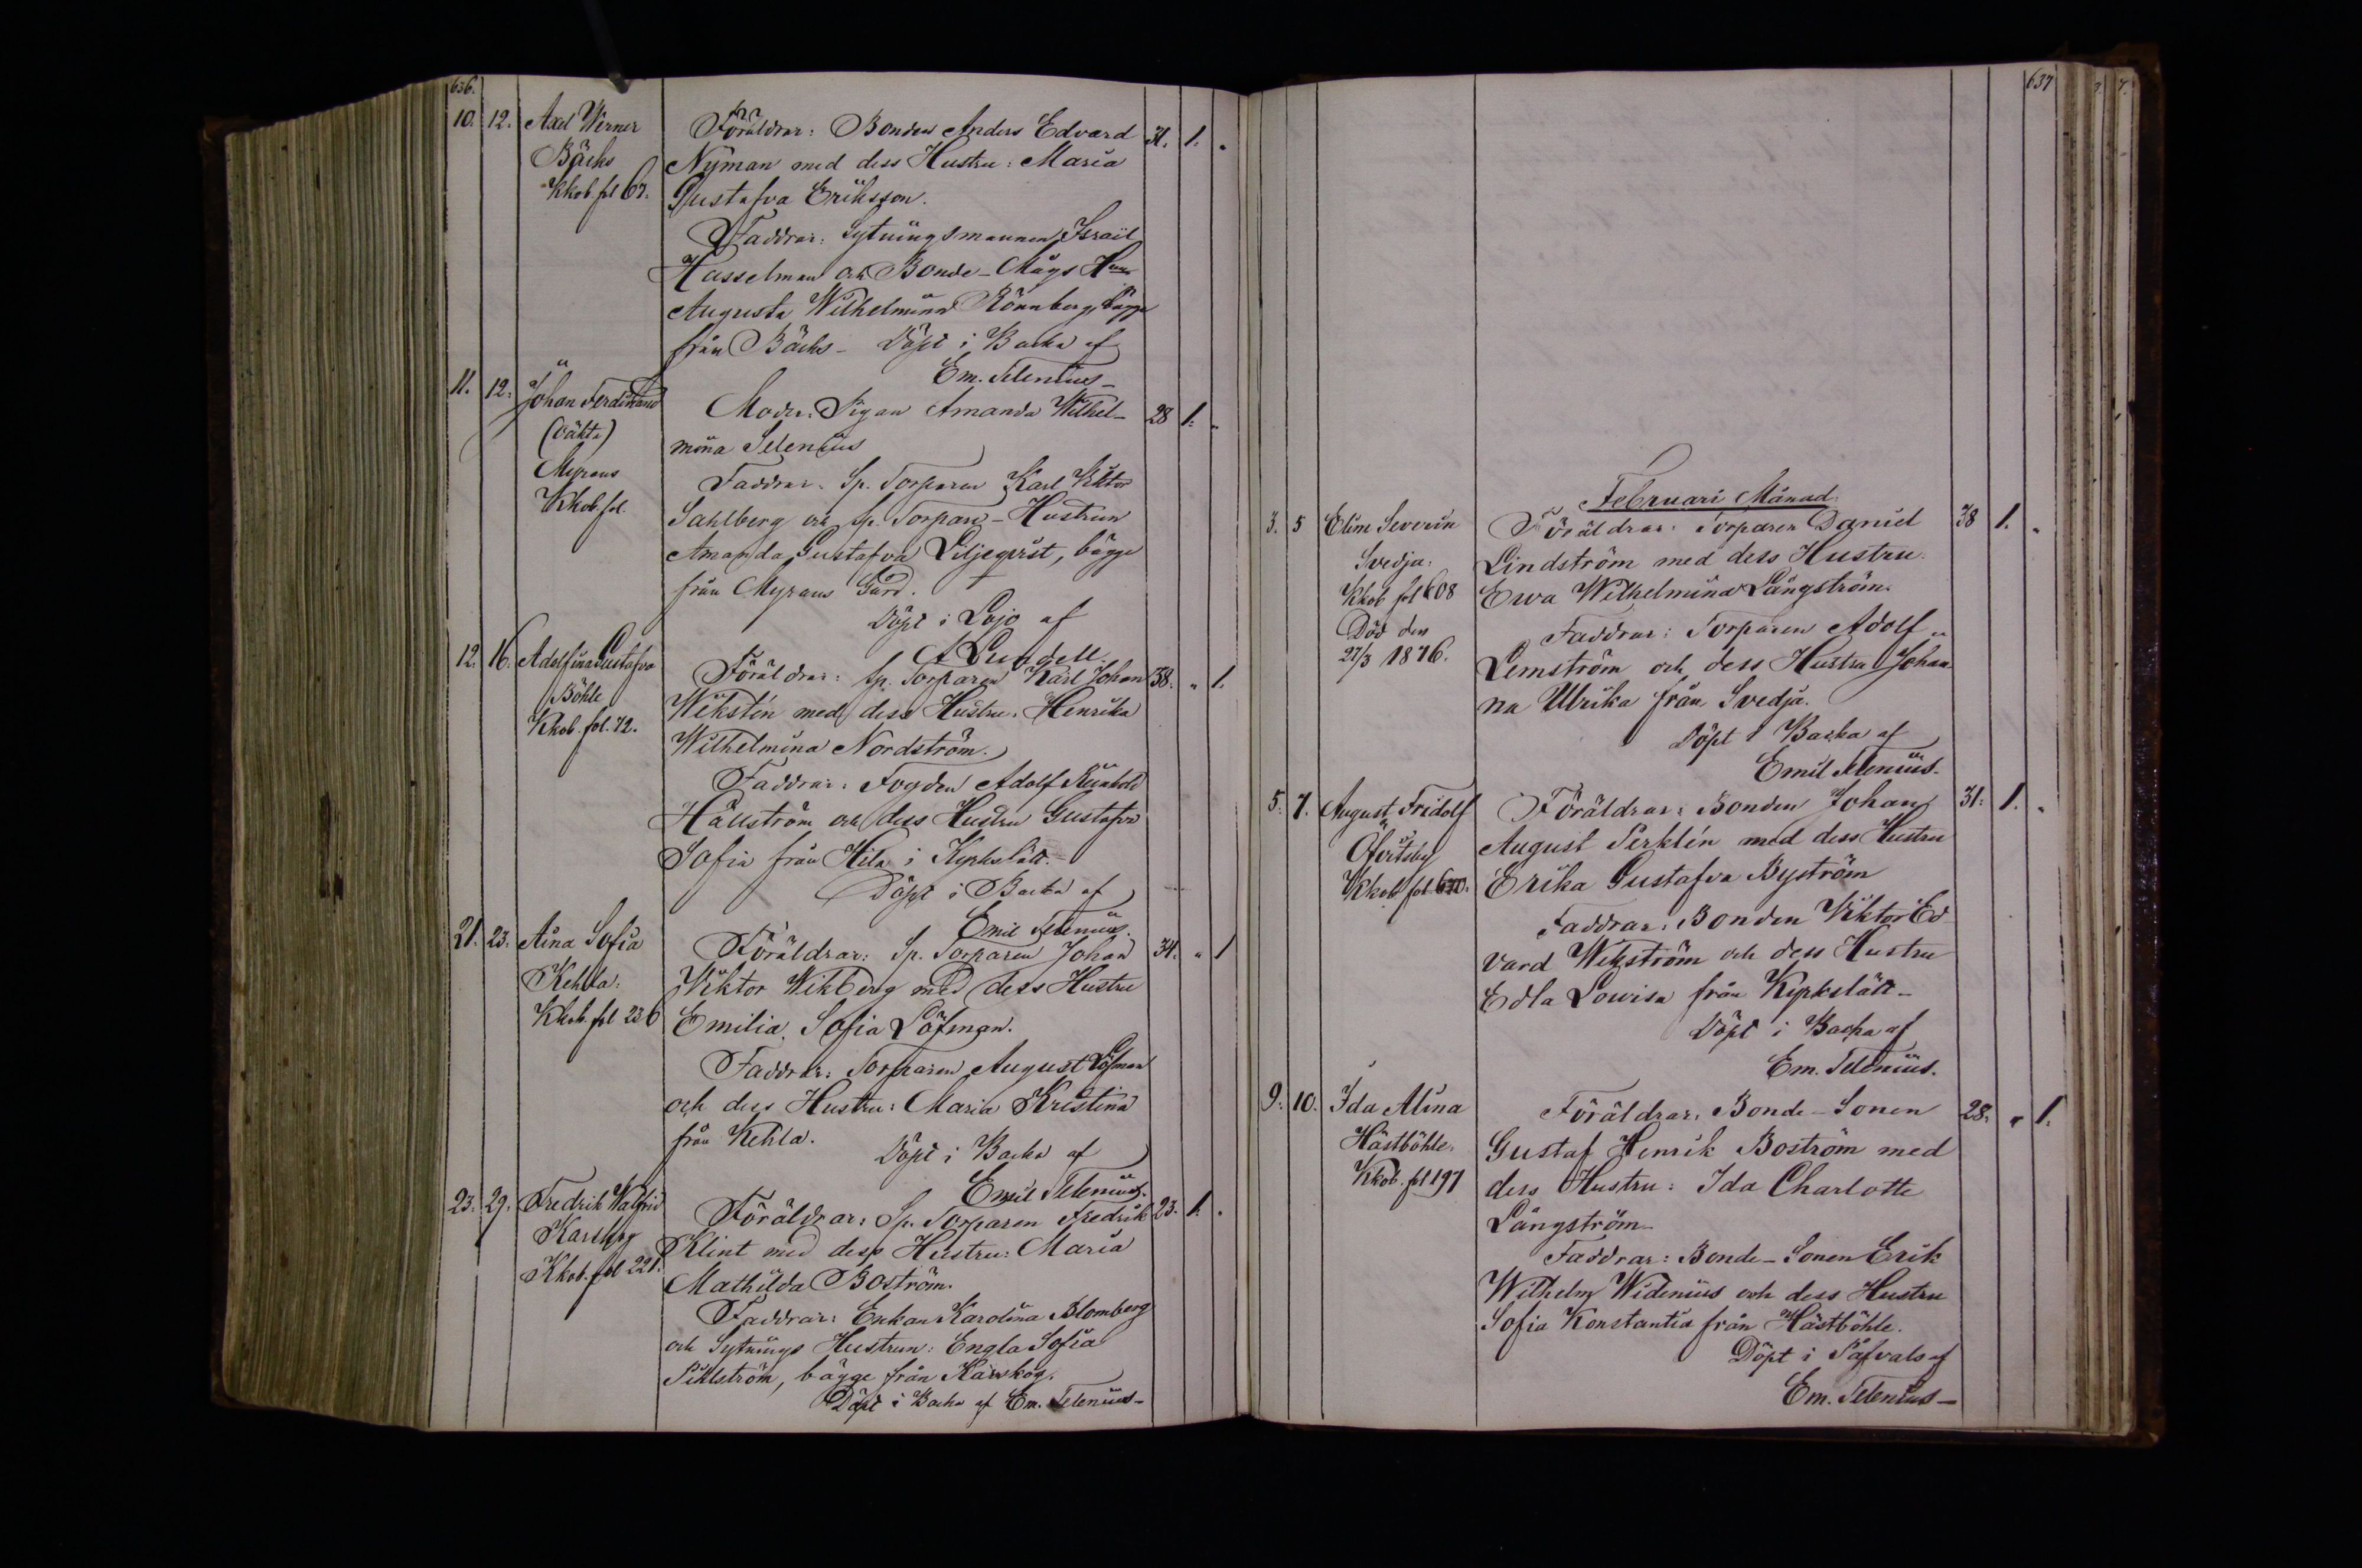 636.
10. 12. Axel Werner Föräldrar: Bonden Anders Edvard 31. 1. "
Bäcks Nyman med dess Hustru: Maria
Kkob. fol 67. Gustafva Eriksson.
Faddrar: Sytningsmannen Israel
Hasselman och Bonde-Mågs
Augusta Wilhelmina Rönnberg, bägge
från Bäcks - Döpt i Backa af
Em. Telenius -
11. 12. Johan Ferdinand Moder: Pigan Amanda Wilhel- 28 1. "
(oäkta) mina Selenius
Myrans Faddrar: Sp. Torparen Karl Viktor
Kkob. fol. Sahlberg och Sp. Torpare-Hustrun
Amanda Gustafva Liljeqvist, bägge
från Myrans Gård.
Döpt i Lojo af
A Lundell.
12. 16. Adolfina Gustafva Föräldrar: Sp. Torparen Karl Johan 38. " 1.
Böhle Wikstén med dess Hustru: Henrika
Kkob. fol. 72. Wilhelmina Nordström.
Faddrar: Fogden Adolf Reinhold
Hällström och dess Hustru Gustafva
Sofia från Hila i Kyrkslätt. -
Döpt i Backa af
Emil Telenius.
21. 23. Aina Sofia Föräldrar: Sp. Torparen Johan 34. " 1
Kehla: Wiktor Wikberg med dess Hustru
Kkob. fol 236 Emilia Sofia Löfman.
Faddrar: Torparen August Löfman
och dess Hustru: Maria Kristina
från Kehla.
Döpt i Backa af
Emil Telenius.
23. 29. Fredrik Walfrid Föräldrar: Sp. Torparen Fredrik 23. 1. "
Karlberg Klint med dess Hustru: Maria
Kkob. fol 221. Mathilda Boström.
Faddrar: Enkan Karolina Blomberg
och Sytnings Hustrun: Engla Sofia
Pihlström, bägge från Karskog.
Döpt i Backa af Em. Telenius -
637
Februari Månad.
3. 5 Elim Severin Föräldrar: Torparen Daniel 38 1. "
Svedja: Lindström med dess Hustru
Kkob fol 608 Ewa Wilhelmina Långström.
Död den Faddrar: Torparen Adolf
27/3 1876. Lemström och dess Hustru Johan
na Ulrika från Svedja.
Döpt i Backa af
Emil Telenius.
5. 7. August Fridolf Föräldrar: Bonden Johan 31. 1. "
Öfvitsby August Perklén med dess Hustru
Kkob fol Erika Gustafva Byström
Faddrar: Bonden Viktor Ed
vard Wikström och dess Hustru
Edla Lowisa från Kyrkslätt -
Döpt i Backa af
Em. Telenius.
9. 10. Ida Alina Föräldrar: Bonde-Sonen 28. " 1.
Hästböhle. Gustaf Henrik Boström med
Kkob. fol 197 dess Hustru: Ida Charlotte
Långström -
Faddrar: Bonde-Sonen Erik
Wilhelm Widenius och dess Hustru
Sofia Konstantia från Hästböhle.
Döpt i Påfvals af
Em. Telenius -